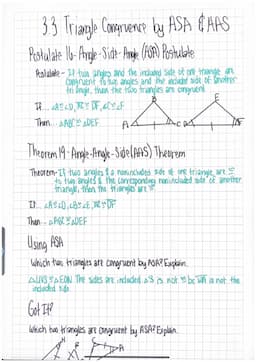 3.3 Triangle Congruence by ASA & AAS
Postulate 16-Angle-Side-Angle (ASA) Postulate
Postulate - If two angles and the included side of one triangle are
congruent to two angles and the included side of another
triangle, then the two triangles are congruent
If ... ∠A≅∠D, AC≅DF, ∠C≅∠F
Then ... △ABC≅△DEF
B
E
A
C
D
F
Theorem 19-Angle-Angle-Side (AAS) Theorem
Theorem- If two angles & a nonincluded side of one triangle are ≅
to two angles & the corresponding nonincluded side of another
triangle, then the triangles are ≅
If ... ∠A≅∠D, ∠B≅∠E, AC≅DF
Then ... △ABC≅△DEF
Using ASA
Which two triangles are congruent by ASA? Explain.
The sides are included ∠'s is not ≅ bc is not the
included side
Got It?
Which two triangles are congruent by ASA? Explain.